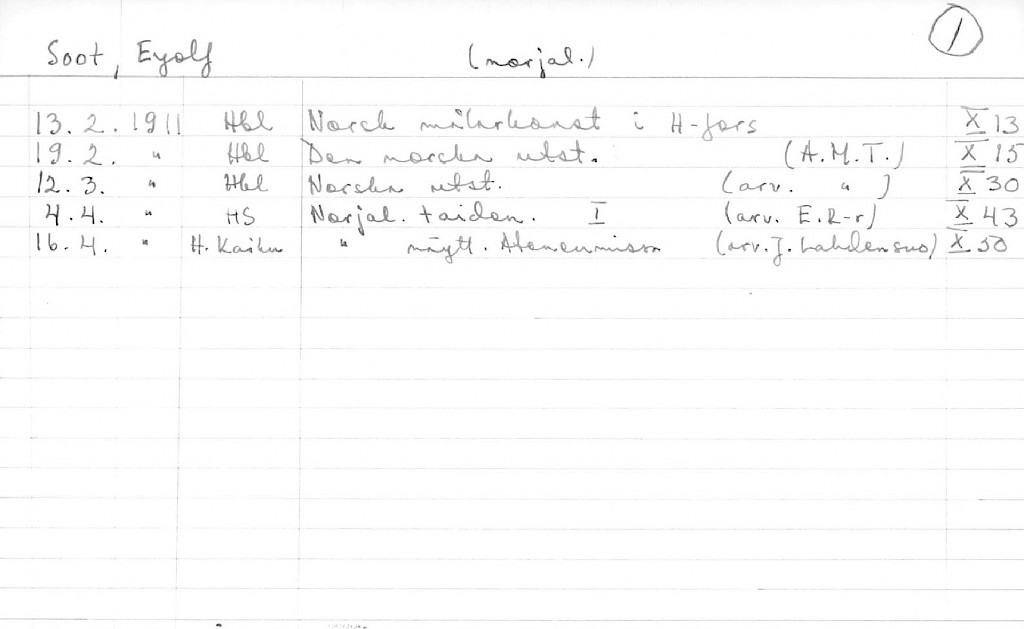 1
Soot, Eyolf (norjal.)
13.2.1911 Hbl Norsk målarkonst i H-fors X 13
19.2. " Hbl Den norska utst. (A.M.T.) X 15
12.3. " Hbl Norska utst. (arv. " ) X 30
4.4. " HS Norjal. taiden. I (arv. E.R-r) X 43
16.4. " H. Kaiku " näytt. Ateneumissa (arv. J. Lahdensuo) X 50